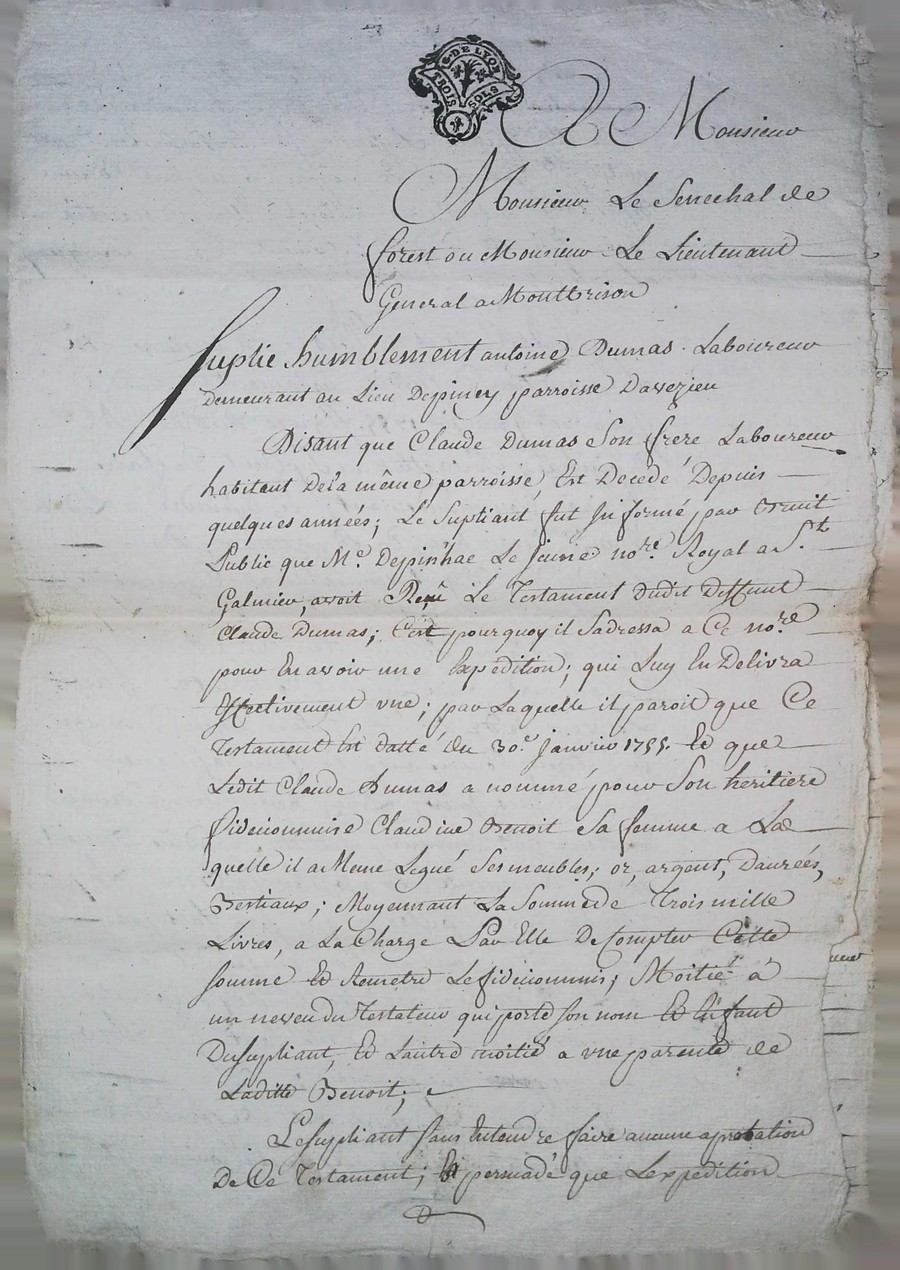 G. DE LYON
TROIS SOLS
A Monsieur
Monsieur Le Senechal de
forest ou Monsieur Le Lieutenant
General a Montbrison
Suplie humblement antoine Dumas Laboureur
demeurant au Lieu Depiney parroisse Daveizieu
Disant que Claude Dumas Son frere Laboureur
habitant Dela même parroisse, Est Decedé Depuis
quelques années; Le Supliant fut Informé par Bruit
Public que Me. Depinhac Le jeune nore. Royal a St.
Galmier, avoit Reçu Le Testament dudit Deffunt
Claude Dumas; C'est pourquoy il Sadressa a Ce nore.
pour En avoir une Expedition; qui Luy En Delivra
Effectivement vne; par Laquelle il paroit que Ce
Testament Est datté du 30e. janvier 1755. Et que
Ledit Claude Dumas a nommé pour Son heritiere
fideicommise Claudine Benoit Sa femme a La
quelle il a Meme Legué Ses meubles; or, argent, Danrées,
Bestiaux; Moyennant La Somme de Trois mille
Livres, a La Charge Par Elle De Compter Cette
somme Et Remetre Le fideicommis; Moitié à
un neveu du Testateur qui porte son nom Et Enfant
Dusupliant, Et Lautre moitié a vne parente de
Laditte Benoit;
Le supliant sans Entendre faire aucune aprobation
De Ce Testament; Et persuadé que Lexpedition